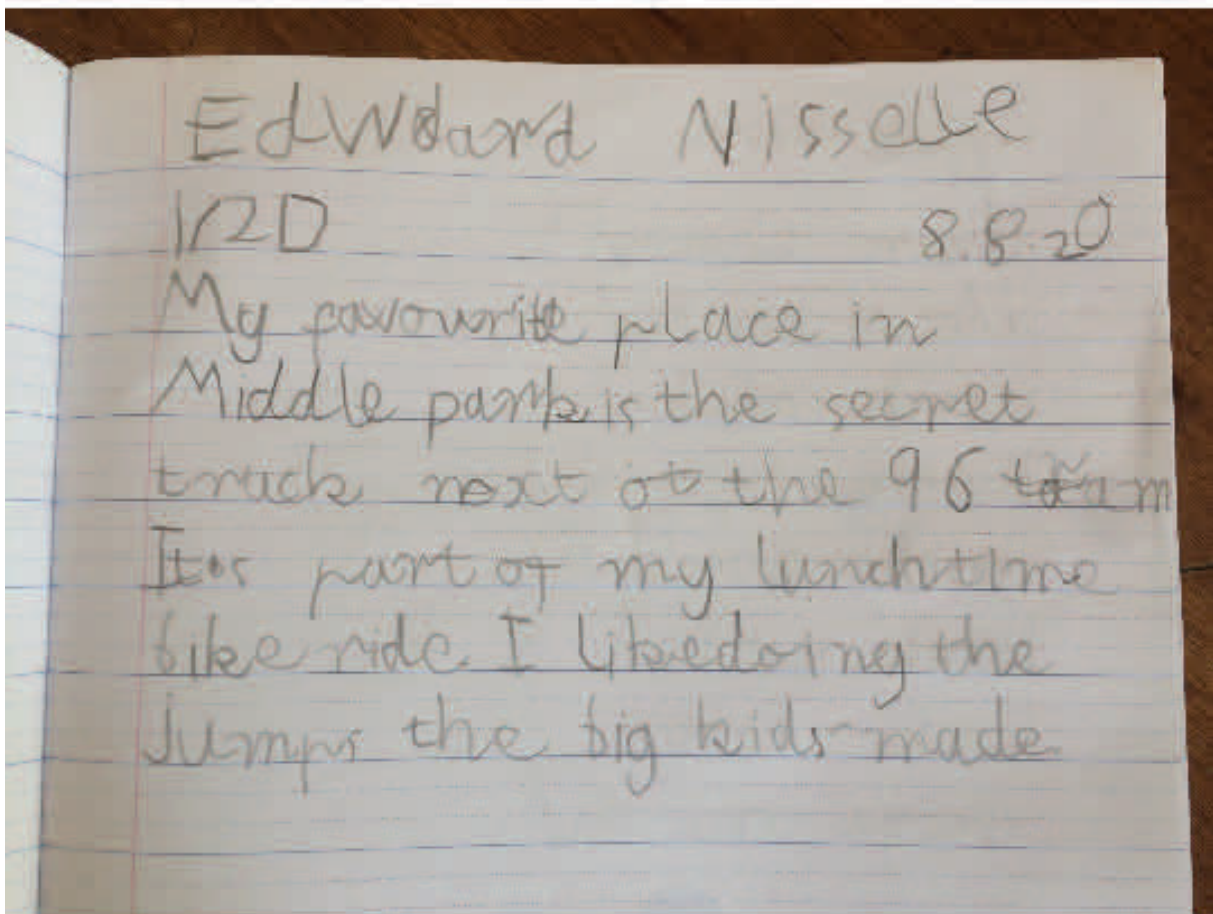 Edward Nisselle
1/2D 8.8.20
My favourite place in
Middle park is the secret
track next ot the 96 tram
It's part of my lunchtime
bike ride. I like doing the
jumps the big kids made.